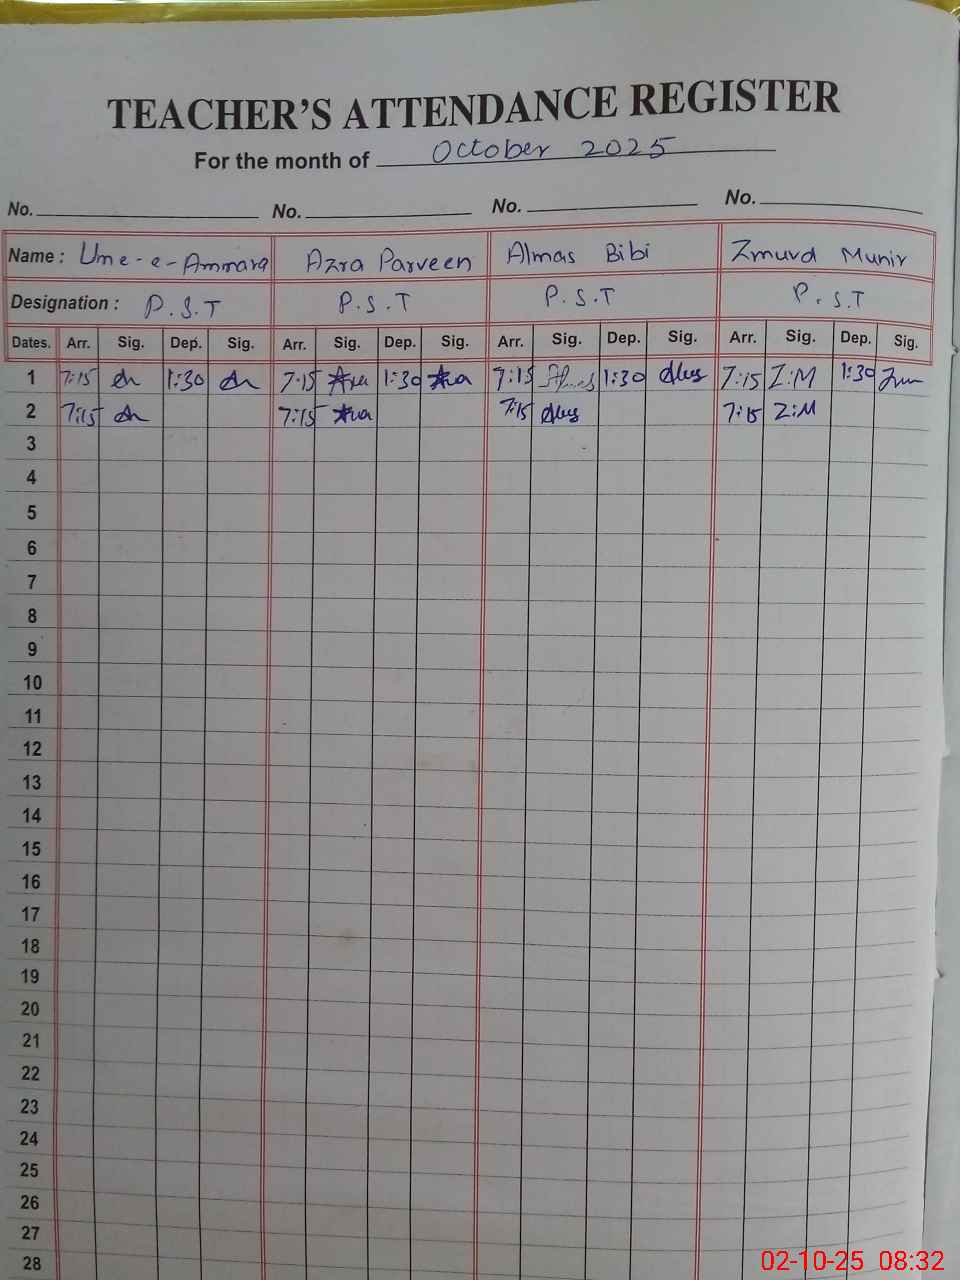 TEACHER'S ATTENDANCE REGISTER
For the month of October 2025
No. No. No. No.
Name : Ume-e-Ammara Azra Parveen Almas Bibi Zmurd Munir
Designation : P.S.T P.S.T P.S.T P.S.T
Dates. Arr. Sig. Dep. Sig. Arr. Sig. Dep. Sig. Arr. Sig. Dep. Sig. Arr. Sig. Dep. Sig.
1 7:15 1:30 7:15 1:30 7:15 1:30 7:15 Z:M 1:30
2 7:15 7:15 7:15 7:15 Z:M
3
4
5
6
7
8
9
10
11
12
13
14
15
16
17
18
19
20
21
22
23
24
25
26
27
28
02-10-25 08:32